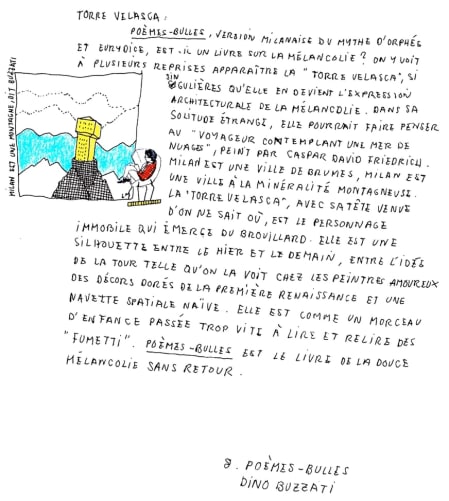 TORRE VELASCA :
POÈMES-BULLES, VERSION MILANAISE DU MYTHE D'ORPHÉE
ET EURYDICE, EST-IL UN LIVRE SUR LA MÉLANCOLIE ? ON Y VOIT
À PLUSIEURS REPRISES APPARAÎTRE LA "TORRE VELASCA", SI
SIN
GULIÈRES QU'ELLE EN DEVIENT L'EXPRESSION
ARCHITECTURALE DE LA MÉLANCOLIE. DANS SA
SOLITUDE ÉTRANGE, ELLE POURRAIT FAIRE PENSER
AU "VOYAGEUR CONTEMPLANT UNE MER DE
NUAGES", PEINT PAR CASPAR DAVID FRIEDRICH.
MILAN EST UNE VILLE DE BRUMES, MILAN EST
UNE VILLE À LA MINÉRALITÉ MONTAGNEUSE.
LA "TORRE VELASCA", AVEC SA TÊTE VENUE
D'ON NE SAIT OÙ, EST LE PERSONNAGE
IMMOBILE QUI ÉMERGE DU BROUILLARD. ELLE EST UNE
SILHOUETTE ENTRE LE HIER ET LE DEMAIN, ENTRE L'IDÉE
DE LA TOUR TELLE QU'ON LA VOIT CHEZ LES PEINTRES AMOUREUX
DES DÉCORS DORÉS DE LA PREMIÈRE RENAISSANCE ET UNE
NAVETTE SPATIALE NAÏVE. ELLE EST COMME UN MORCEAU
D'ENFANCE PASSÉE TROP VITE À LIRE ET RELIRE DES
"FUMETTI". POÈMES-BULLES EST LE LIVRE DE LA DOUCE
MÉLANCOLIE SANS RETOUR.
MILAN EST UNE MONTAGNE, DIT BUZZATI
8. POÈMES-BULLES
DINO BUZZATI